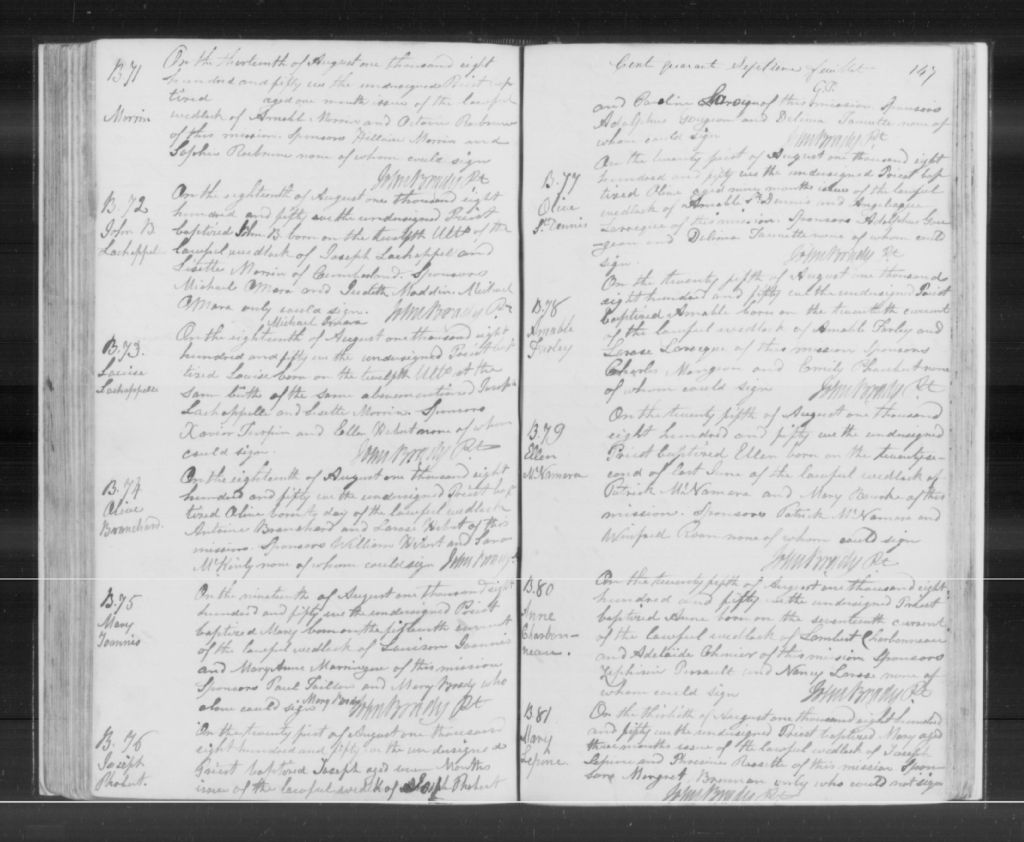 B.71
Morrin
On the thirteenth of August one thousand eight
hundred and fifty we the undersigned Priest bap
tized aged one month issue of the lawful
wedlock of Amable Morrin and
of this mission. Sponsors Morrin and
Sophie none of whom could sign
John Brady Pt
B.72
John B
Lachappel
On the eighteenth of August one thousand eight
hundred and fifty we the undersigned Priest
baptized John B born on the twelfth Ulto of the
lawful wedlock of Joseph Lachappel and
Lisette Morrin of Cumberland. Sponsors
Michael OMara and Judith Maddin. Michael
OMara only could sign. John Brady Pt
Michael Omara
B.73.
Louise
Lachappelle
On the eighteenth of August one thousand eight
hundred and fifty we the undersigned Priest bap
tized Louise born on the twelfth Ulto at the
same birth of the same abovementioned Joseph
Lachappelle and Lisette Morrin. Sponsors
Xavier Turpin and Ellen Hebert none of whom
could sign. John Brady Pt
B.74
Olive
Branchard.
On the eighteenth of August one thousand eight
hundred and fifty we the undersigned Priest bap
tized Olive born to day of the lawful wedlock
Antoine Branchard and Hebert of this
mission. Sponsors William Hebert and
none of whom could sign John Brady Pt
B.75
Mary
Joannis
On the nineteenth of August one thousand eight
hundred and fifty we the undersigned Priest
baptized Mary born on the fifteenth current
of the lawful wedlock of Joannis
and Mary Anne of this mission
Sponsors Paul and Mary Brady who
alone could sign Mary Brady John Brady Pt
B.76
Joseph
Phebert.
On the twenty first of August one thousand
eight hundred and fifty we the undersigned
Priest baptized Joseph aged Months
issue of the lawful wedlock of Joseph Phebert
Cent quarant Septième feuillet 147
and Caroline Laroque of this mission. Sponsors
Adolphus Gougeon and Delima none of
whom could sign John Brady Pt
B.77
Olive
St Dennis
On the twenty first of August one thousand eight
hundred and fifty we the undersigned Priest bap
tized Olive aged nine months issue of the lawful
wedlock of Amable St Dennis and Angelique
Laroque of this mission. Sponsors Adolphus Gou
geon and Delima none of whom could
sign. John Brady Pt
B.78
Amable
Farley
On the twenty fifth of August one thousand
eight hundred and fifty we the undersigned Priest
baptized Amable born on the twentieth current
of the lawful wedlock of Amable Farley and
Laroque of this mission Sponsors
Charles Mongeon and Emily none
of whom could sign John Brady Pt
B.79
Ellen
McNamara
On the twenty fifth of August one thousand
eight hundred and fifty we the undersigned
Priest baptized Ellen born on the twenty se-
cond of last June of the lawful wedlock of
Patrick McNamara and Mary Rourke of this
mission. Sponsors Patrick McNamara and
Winifred none of whom could sign
John Brady Pt
B.80
Anne
Charbon-
neau.
On the twenty fifth of August one thousand eight
hundred and fifty we the undersigned Priest
baptized Anne born on the seventeenth current
of the lawful wedlock of Lambert Charbonneau
and Adelaide Chenier of this mission Sponsors
Zephirin Perrault and Nancy none of
whom could sign John Brady Pt
B.81
Mary
Lepine.
On the thirtieth of August one thousand eight hundred
and fifty we the undersigned Priest baptized Mary aged
three months issue of the lawful wedlock of Joseph
Lepine and of this mission Spon
sors Margret Brennan only who could not sign
John Brady Pt